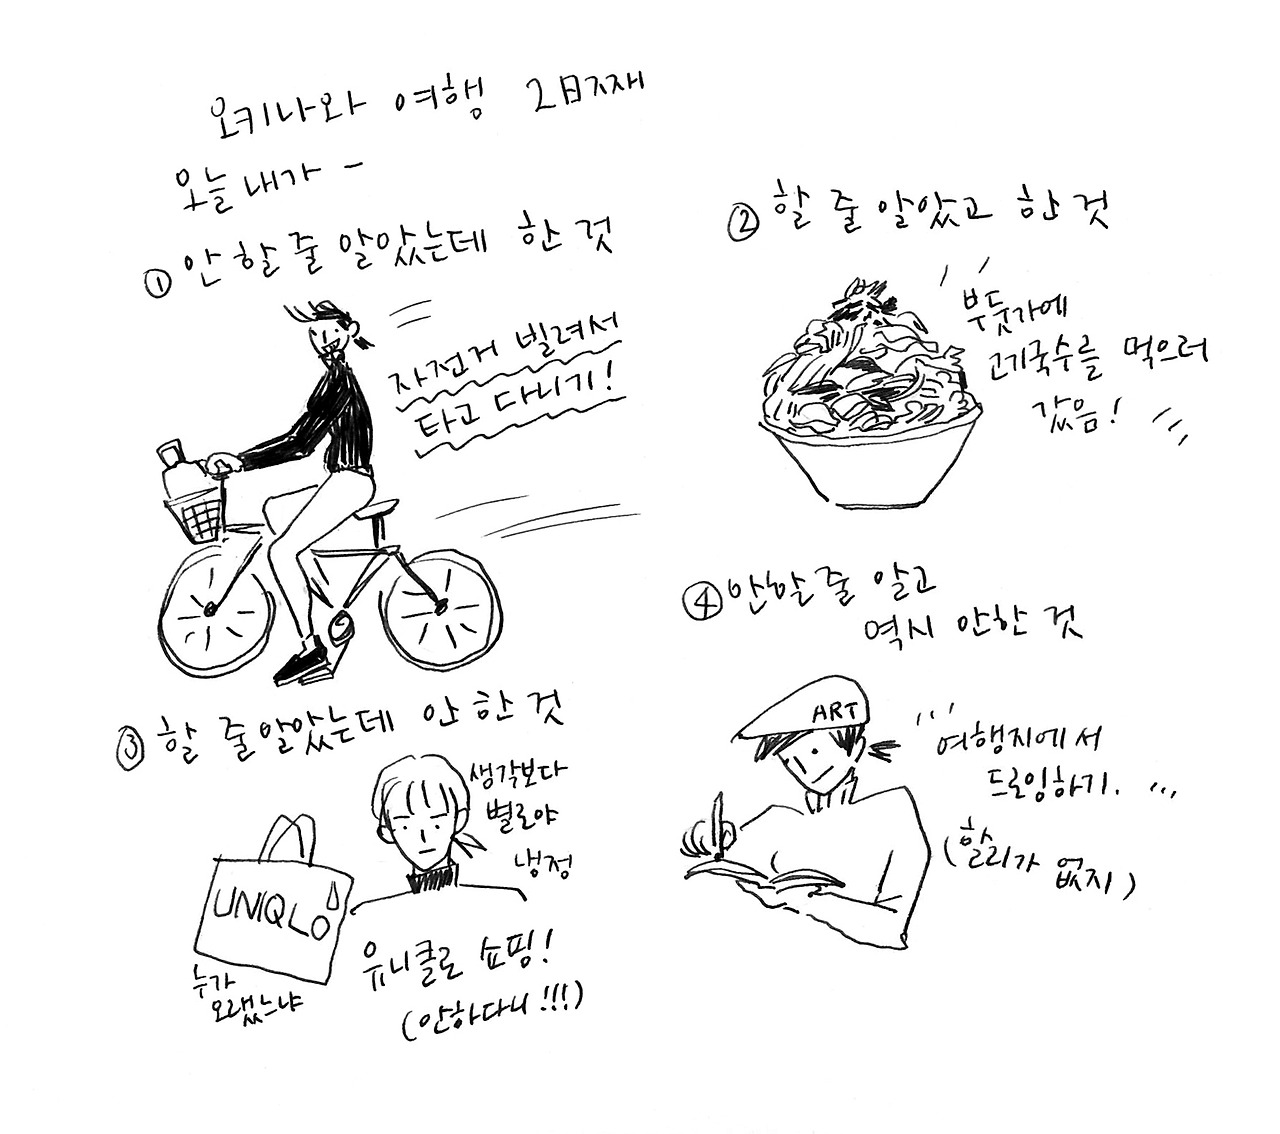 오키나와 여행 2日째
오늘 내가 -
① 안 할 줄 알았는데 한 것
자전거 빌려서
타고 다니기!
② 할 줄 알았고 한 것
부둣가에
고기국수를 먹으러
갔음!
③ 할 줄 알았는데 안 한 것
생각보다
별로야
냉정
UNIQLO
누가
오랬느냐
유니클로 쇼핑!
(안하다니!!!)
④ 안할 줄 알고
역시 안한 것
ART
여행지에서
드로잉하기.
(할리가 없지)